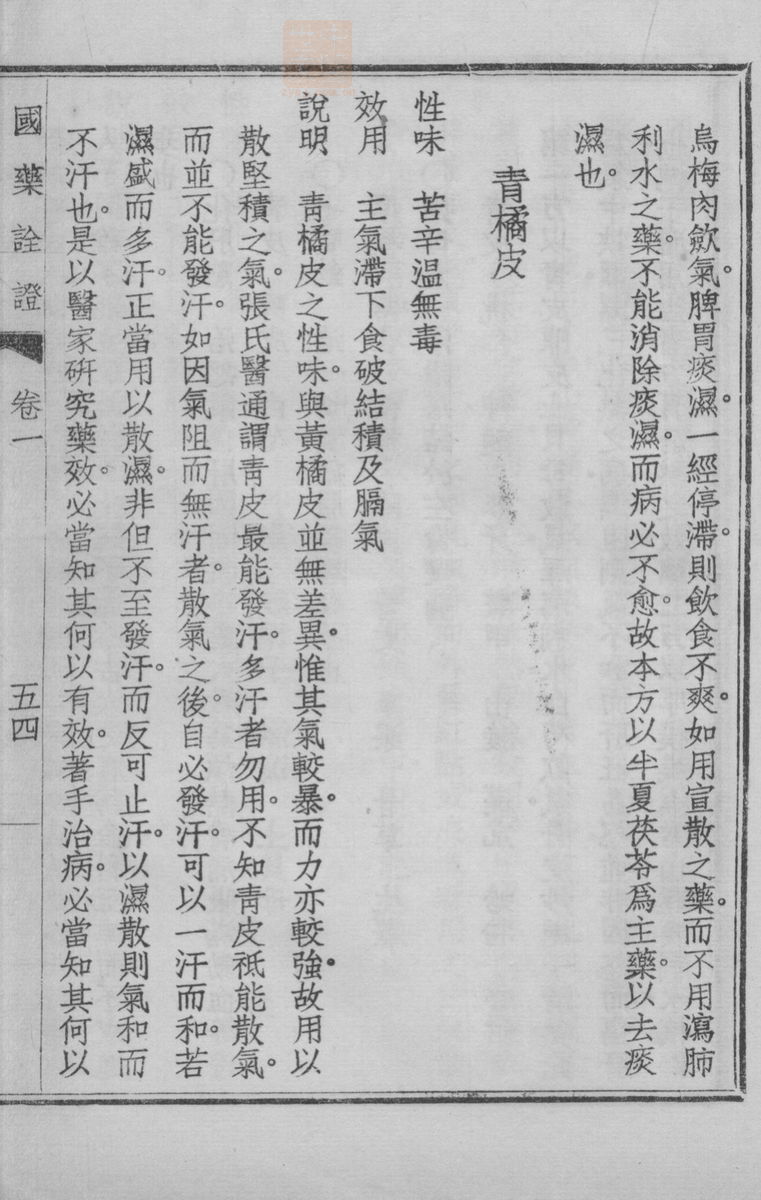 烏梅肉歛氣。脾胃痰濕。一經停滯。則飲食不爽。如用宣散之藥。而不用瀉肺
利水之藥。不能消除痰濕。而病必不愈。故本方以半夏茯苓爲主藥。以去痰
濕也。
青橘皮
性味　苦辛温無毒
效用　主氣滯下食破結積及膈氣
說明　青橘皮之性味。與黃橘皮並無差異。惟其氣較暴。而力亦較強。故用以
散堅積之氣。張氏醫通謂靑皮最能發汗。多汗者勿用。不知青皮祗能散氣。
而並不能發汗。如因氣阻而無汗者。散氣之後。自必發汗。可以一汗而和。若
濕盛而多汗。正當用以散濕。非但不至發汗。而反可止汗。以濕散則氣和而
不汗也。是以醫家研究藥效。必當知其何以有效。著手治病。必當知其何以
國藥詮證　卷一　五四